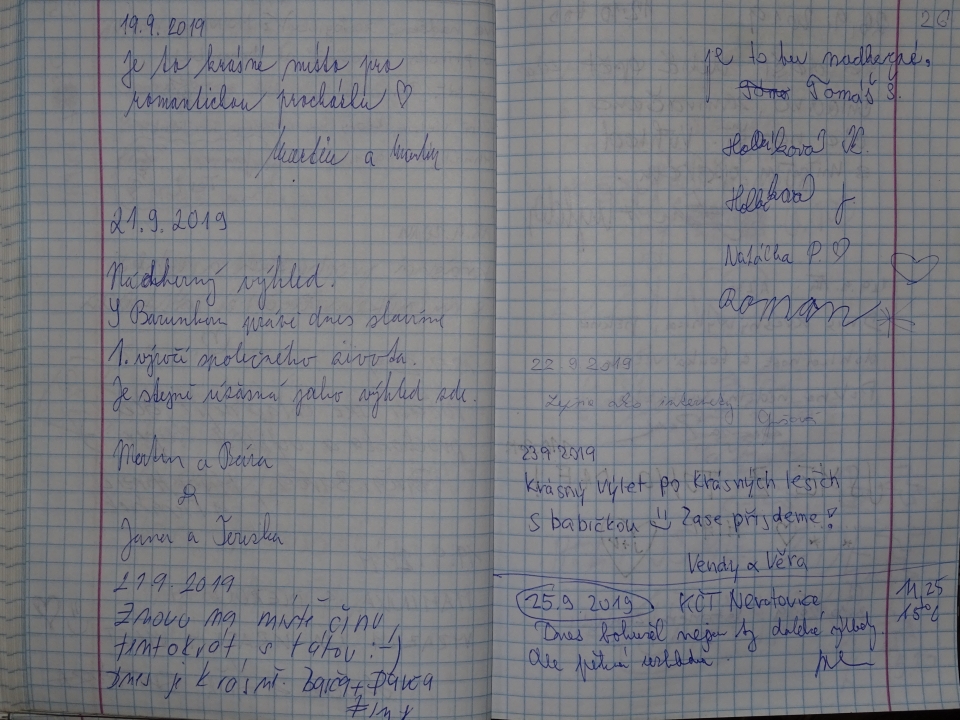 19.9.2019
Je to krásné místo pro
romantickou procházku ♡
Martin a
21.9.2019
Nádherný výhled.
S Barunkou právě dnes slavíme
1. výročí společného života.
Je stejně úžasná jako výhled zde.
Martin a Bára
&
Jana a Terezka
21.9.2019
Znovu na místě činu,
tentokrát s tátou :-)
Dnes je krásně. Barča + Davča
26
je to tu nadherné.
Tomáš S.
K.
J
Natálka P. ♡
Roman
22.9.2019
23.9.2019
Krásný výlet po krásných lesích
s babičkou Zase přijdeme!
Vendy a Věra
25.9.2019 KČT Neratovice 11,25
Dnes bohužel nejsou ty daleké výhledy.
Ale pěkná